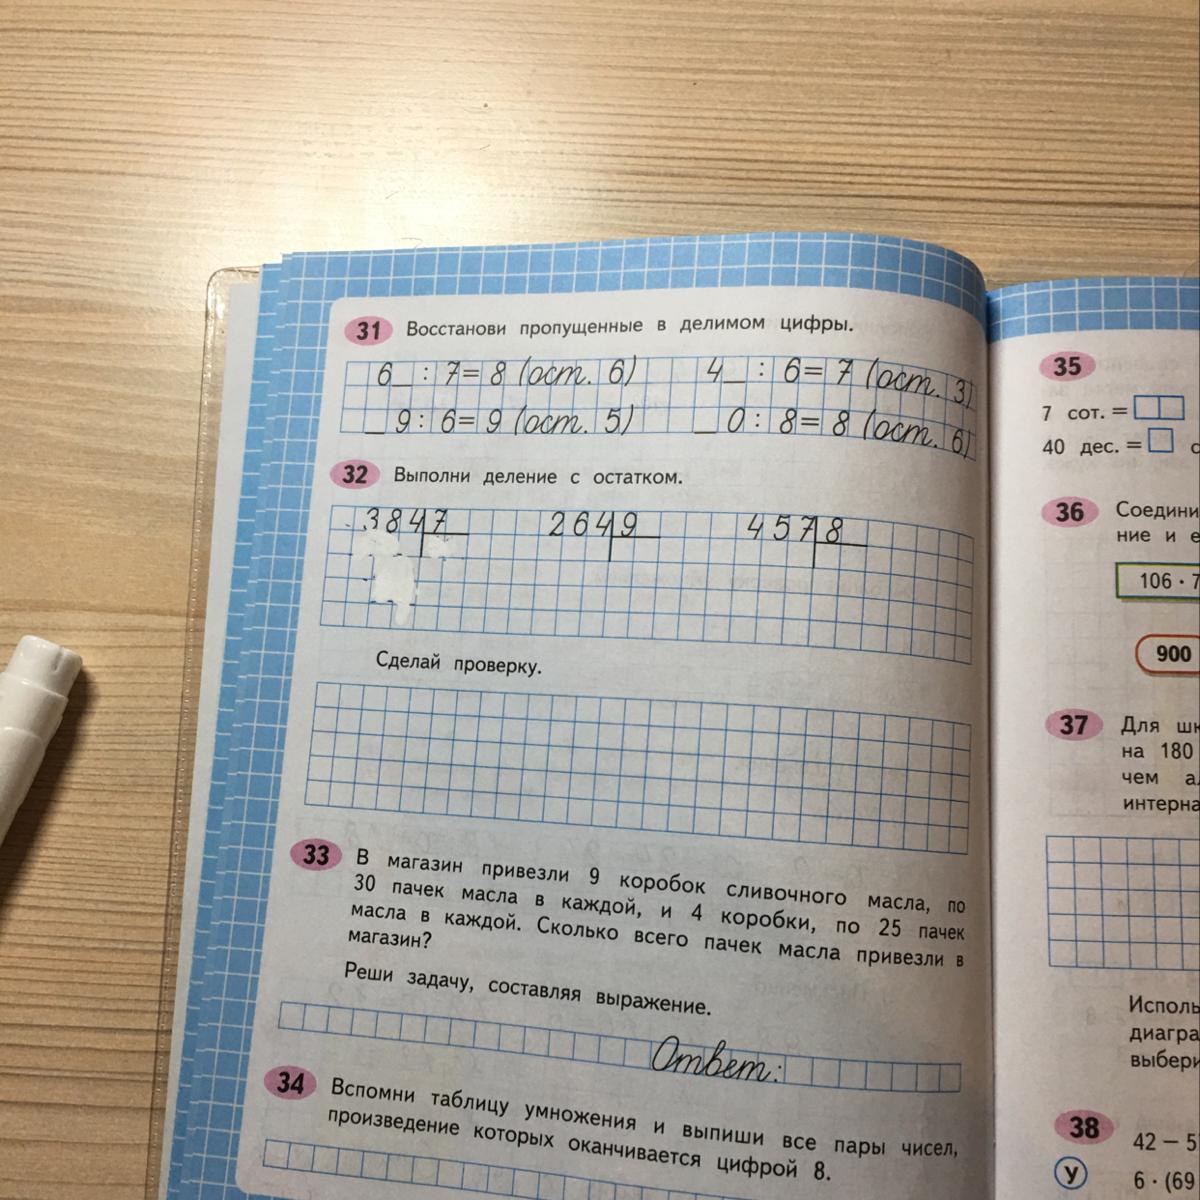 31 Восстанови пропущенные в делимом цифры.
6_ : 7 = 8 (ост. 6) 4_ : 6 = 7 (ост. 3)
_9 : 6 = 9 (ост. 5) _0 : 8 = 8 (ост. 6)
32 Выполни деление с остатком.
384|7 264|9 457|8
Сделай проверку.
33 В магазин привезли 9 коробок сливочного масла, по
30 пачек масла в каждой, и 4 коробки, по 25 пачек
масла в каждой. Сколько всего пачек масла привезли в
магазин?
Реши задачу, составляя выражение.
Ответ:
34 Вспомни таблицу умножения и выпиши все пары чисел,
произведение которых оканчивается цифрой 8.
35
7 сот. =
40 дес. =
36 Соедини
ние и е
106 · 7
900
37 Для шк
на 180
чем а
интерна
Исполь
диагра
выбери
38 42 − 5
У 6 · (69